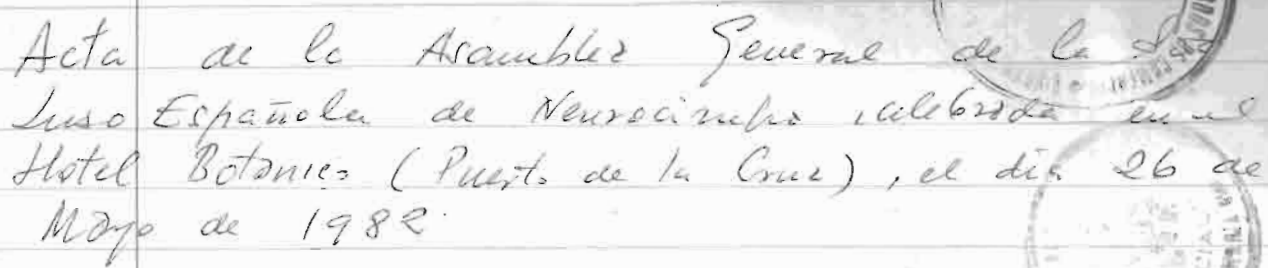 Acta de la Asamblea General de la S.
Luso Española de Neurocirugía, celebrada en el
Hotel Botánico (Puerto de la Cruz), el día 26 de
Mayo de 1982